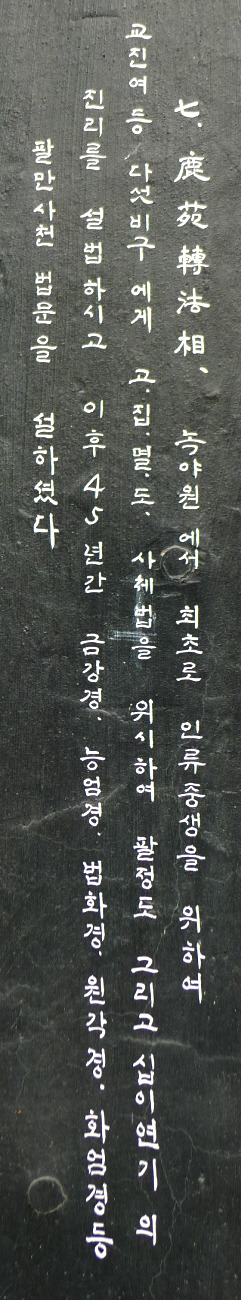 七. 鹿苑轉法相、 녹야원에서 최초로 인류중생을 위하여
교진여등 다섯비구에게 고.집.멸.도. 사체법을 위시하여 팔정도 그리고 십이연기의
진리를 설법하시고 이후 45년간 금강경. 능엄경. 법화경. 원각경. 화엄경등
팔만사천 법문을 설하셨다